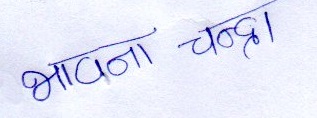 भावना चन्द्रा